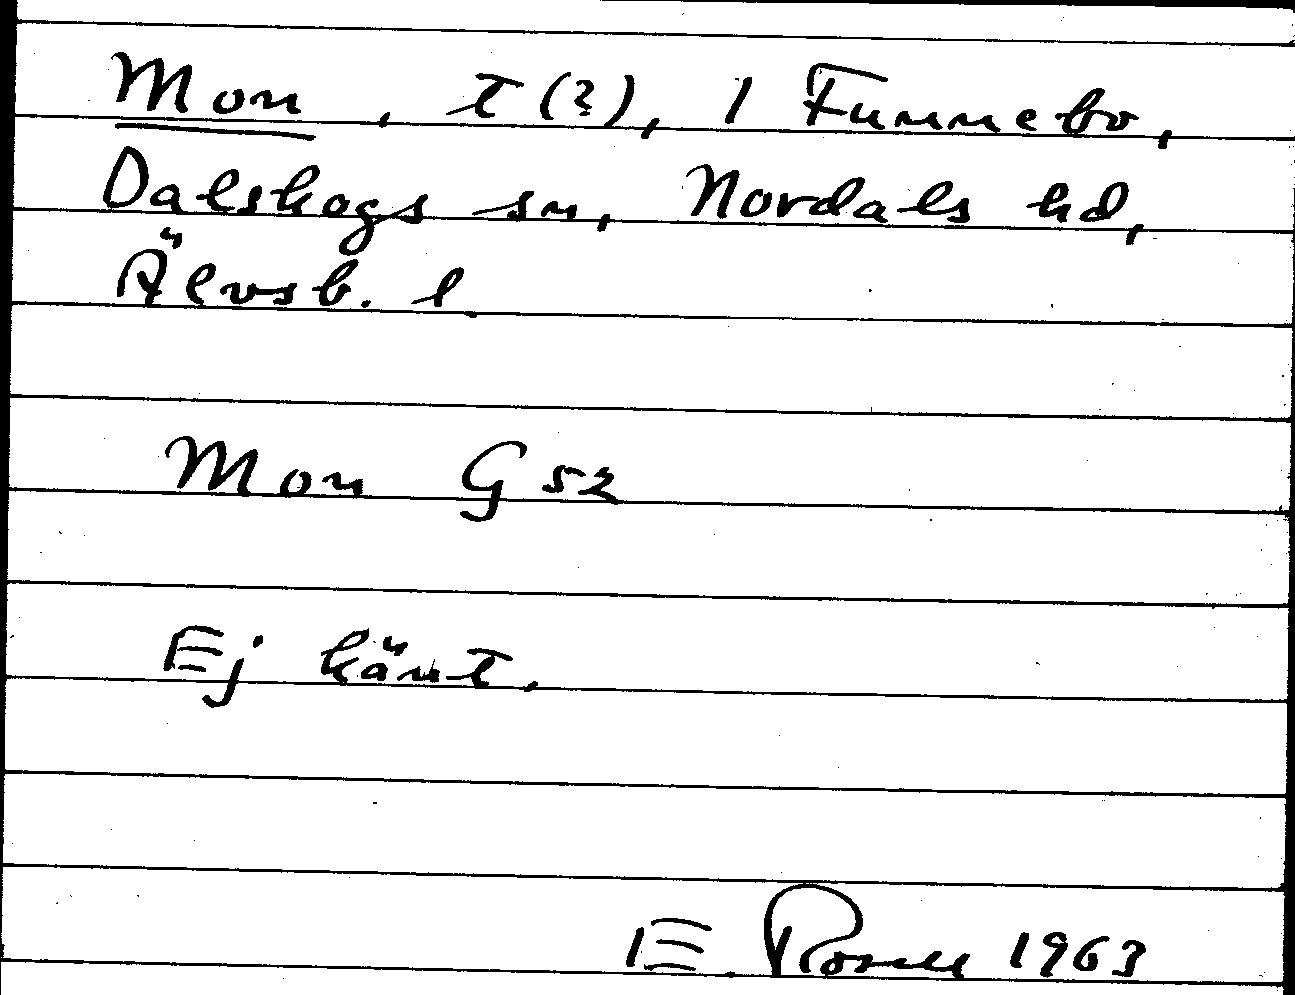 Mon, t(?), 1 Funnebo,
Dalskogs sn, Nordals hd,
Älvsb. l.
Mon G 52
Ej känt.
E. Rosell 1963